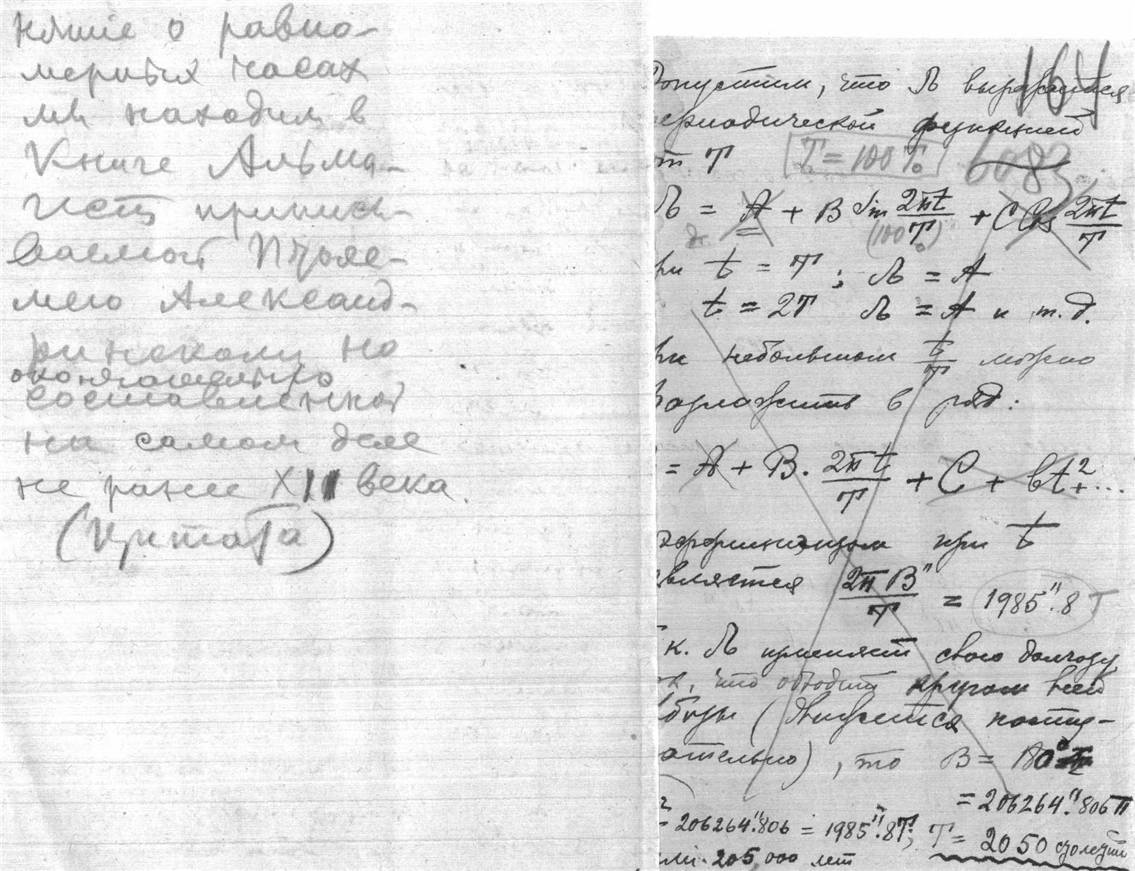 о равно-
мерных часах
мы находим в
Книге Альма-
гест приписы-
ваемой Птоле-
мею Александ-
рийскому но
окончательно
составленной
на самом деле
не ранее XII века.
164
Допустим, что Л выражается
периодической функцией
от T T = 100 T₀ 6083
Л = A + B Sin 2πt/T + C Cos 2πt/T
(100 T₀)
при t = T ; Л = A
t = 2T Л = A и т.д.
при небольшом t/T можно
разложить в ряд:
= A + B. 2πt/T + C + bt²+...
коэффициентом при t
является 2πB"/T = 1985".8 T
Т.к. Л свою долготу
так, что обходит кругом всей
(движется посту-
пательно), то B = 180°
= 206264".806 π
= 206264".806 = 1985".8T; T = 2050 столетий
или 205,000 лет